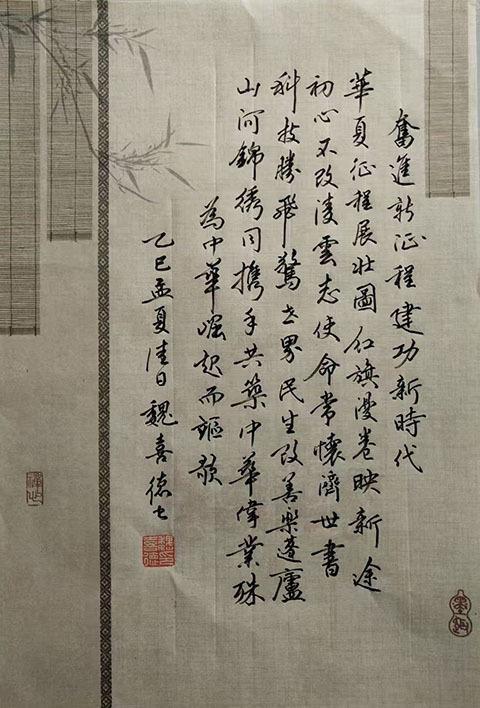 奮進新征程建功新時代
華夏征程展壯圖紅旗漫卷映新途
初心不改淩雲志使命常懷濟世書
科技勝飛驚世界民生改善樂蓬廬
山河錦綉同攜手共築中華偉業殊
為中華崛起而謳歌
乙巳孟夏佳日魏喜德七